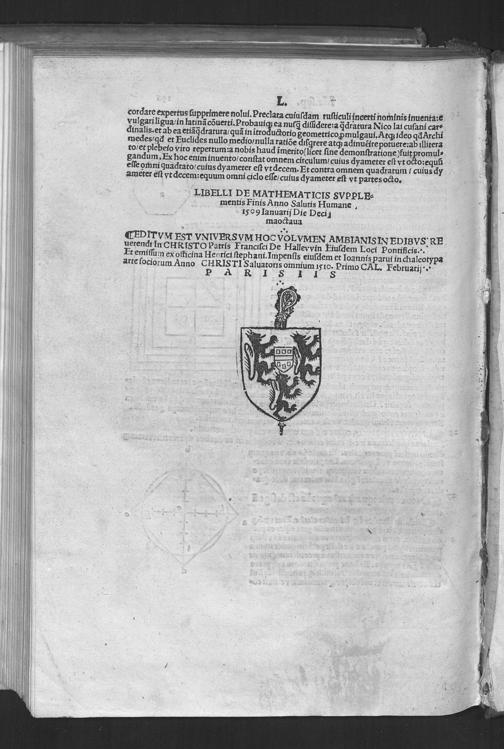 L.
cordare expertus supprimere nolui. Preclara cuiusdam rusticuli incerti nominis inuenta: e
vulgari ligua/in latinā cōuerti. Probauiqȝ ea nusq̄ dissidere: a q̄dratura Nico lai cusani car⸗
dinalis. et ab ea etiā q̄dratura/quā in ītroductorio geometrico, pmulgaui. Atqȝ ideo qd̄ Archi
medes/qd̄ et Euclides nullo medio: nulla ratiōe disq̄rere atqȝ adinuēire potuere: ab illitera
to/et plebeio viro repertum: a nobis haud īmerito (licet sine demonstratione) fuit promul⸗
gandum. Ex hoc enim inuento/constat omnem circulum/cuius dyameter est vt octo: equū
esse omni quadrato/cuius dyameter est vt decem. Et contra omnem quadratum/cuius dy
ameter est vt decem: equum omni ciclo esse/cuius dyameter est vt partes octo.
LIBELLI DE MATHEMATICIS SVPPLE⸗
mentis Finis Anno Salutis Humane,
1509 Ianuarij Die Deci⸗
maoctaua
⁋EDITVM EST VNIVERSVM HOC VOLVMEN AMBIANIS IN EDIBVS RE
uerendi In CHRISTO Patris Francisci De Halleuuin Eiusdem Loci Pontificis.
Et emissum ex officina Henrici stephani. Impensis eiusdem et Ioannis parui in chalcotypa
arte sociorum Anno CHRISTI Saluatoris omnium 1510. Primo CAL. Februarij.
PARISIIS